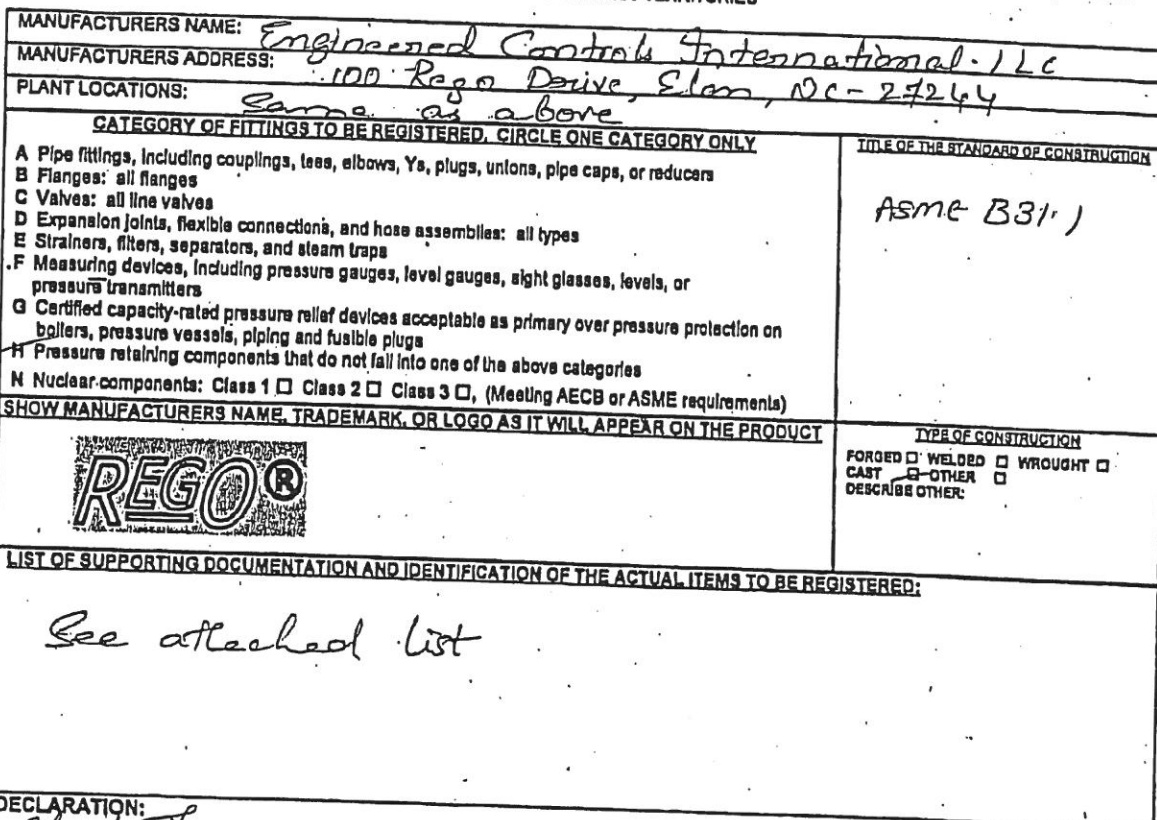 TERRITORIES
MANUFACTURERS NAME: Engineered Controls International. LLC
MANUFACTURERS ADDRESS: 100 Rego Derive, Elon, NC - 27244
PLANT LOCATIONS: Same as above
CATEGORY OF FITTINGS TO BE REGISTERED, CIRCLE ONE CATEGORY ONLY
A Pipe fittings, including couplings, tees, elbows, Ys, plugs, unions, pipe caps, or reducers
B Flanges: all flanges
C Valves: all line valves
D Expansion joints, flexible connections, and hose assemblies: all types
E Strainers, filters, separators, and steam traps
F Measuring devices, including pressure gauges, level gauges, sight glasses, levels, or
pressure transmitters
G Certified capacity-rated pressure relief devices acceptable as primary over pressure protection on
boilers, pressure vessels, piping and fusible plugs
H Pressure retaining components that do not fall into one of the above categories
N Nuclear components: Class 1 ☐ Class 2 ☐ Class 3 ☐, (Meeting AECB or ASME requirements)
TITLE OF THE STANDARD OF CONSTRUCTION
ASME B31.1
SHOW MANUFACTURERS NAME, TRADEMARK, OR LOGO AS IT WILL APPEAR ON THE PRODUCT
REGO®
TYPE OF CONSTRUCTION
FORGED ☐ WELDED ☐ WROUGHT ☐
CAST ☐ OTHER ☐
DESCRIBE OTHER:
LIST OF SUPPORTING DOCUMENTATION AND IDENTIFICATION OF THE ACTUAL ITEMS TO BE REGISTERED:
See attached list
DECLARATION: